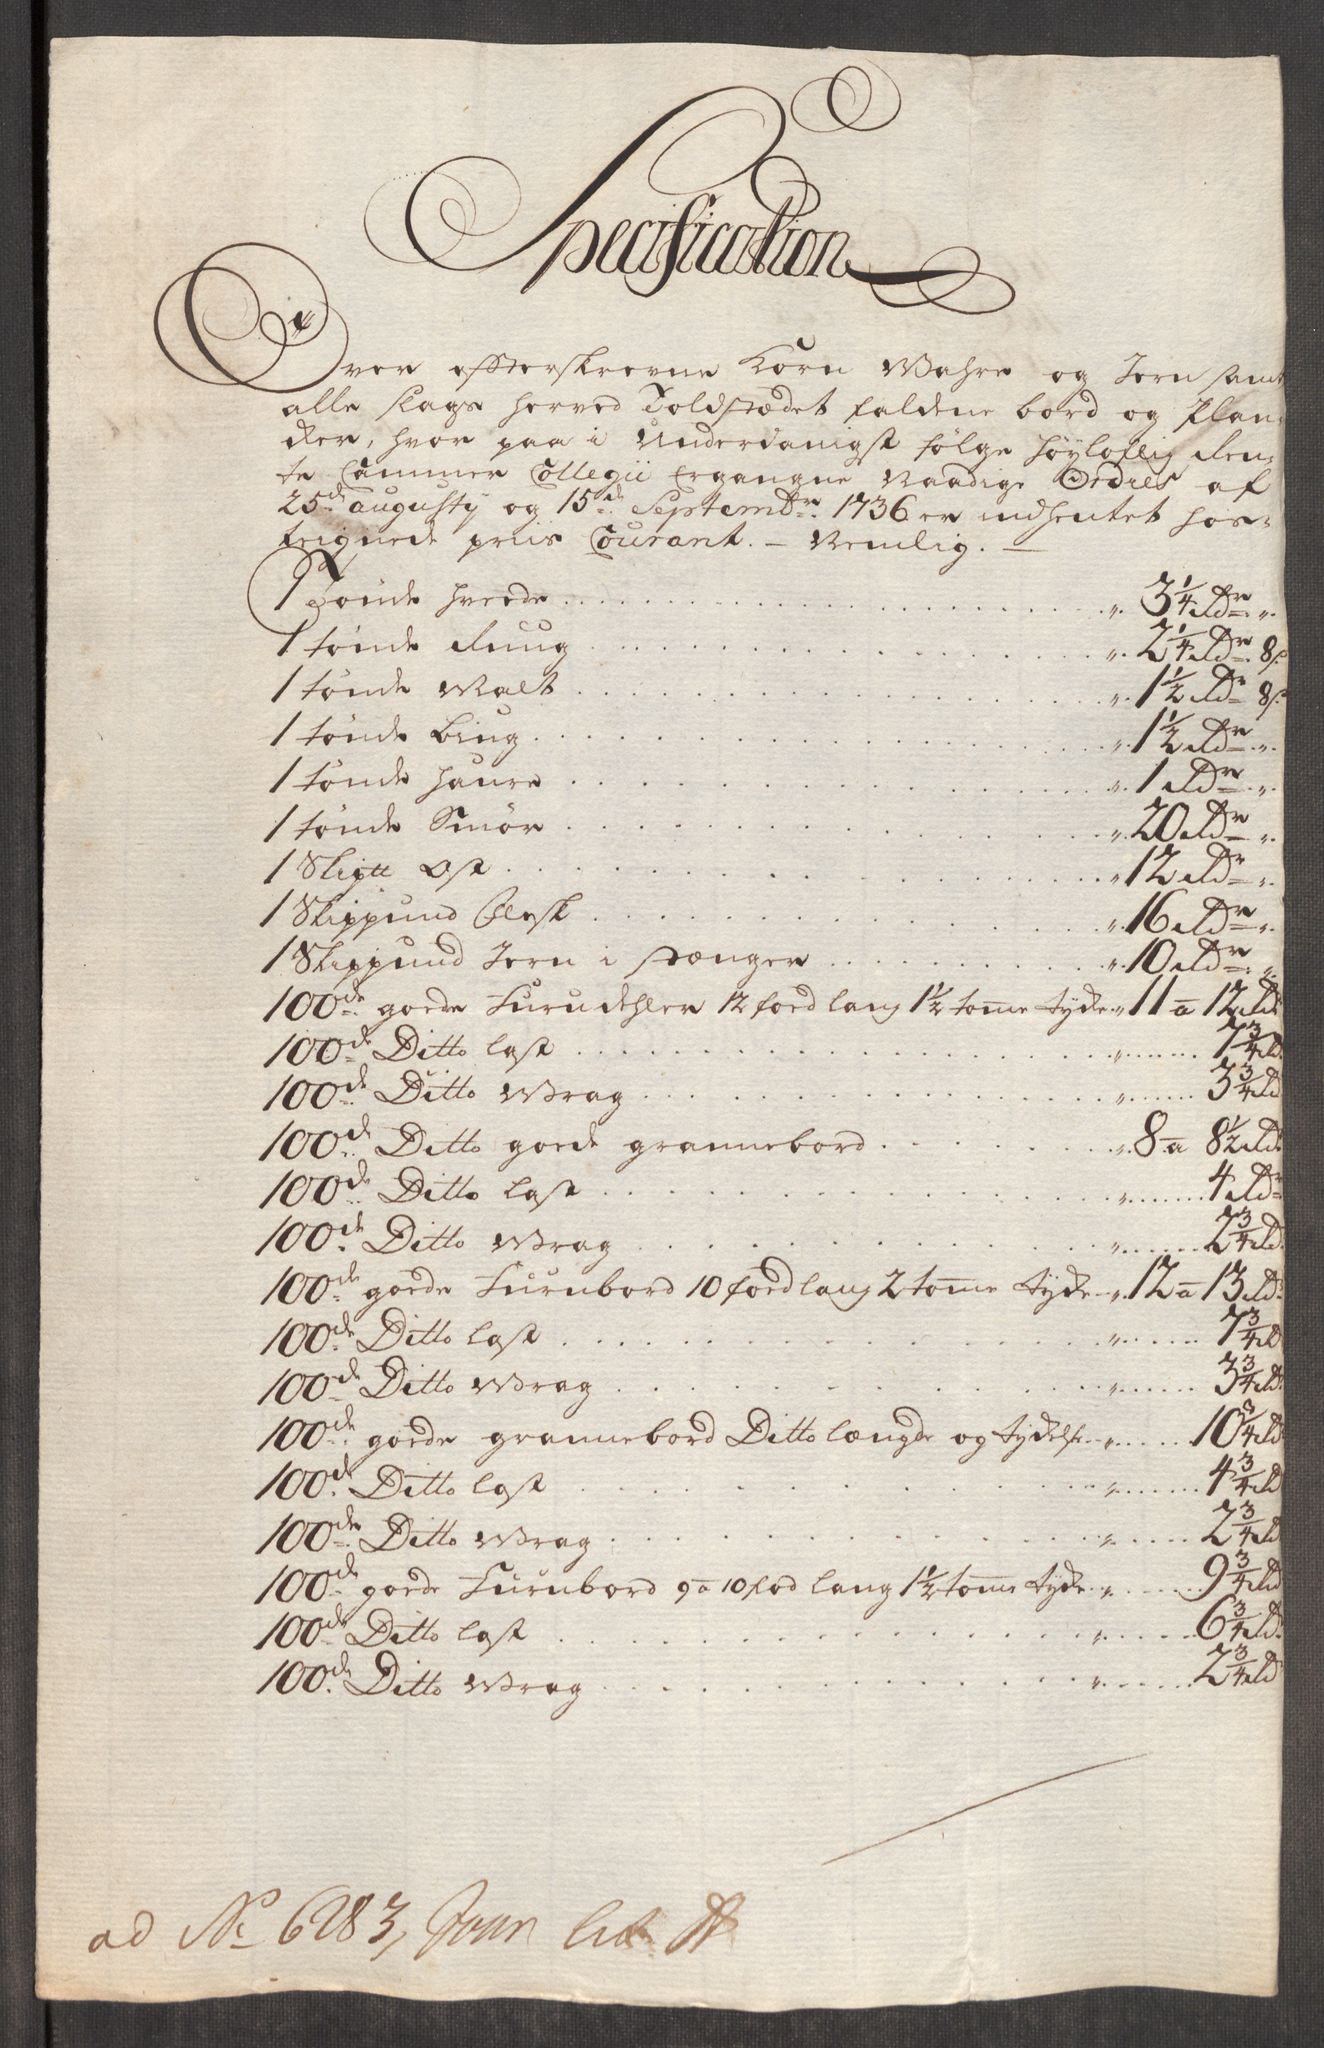 Specification
Over efftterskrevne Korn Wahre og Jern samt
alle slags herved Toldstædet faldene bord og Plan¬
cker, hvor paa i Underdanigst følge Høyloflig Ren¬
te Cammer Collegii Ergangne Naadige Ordres af
25de augusty og 15de Septembr: 1736 er indhentet hos¬
teignede priis Courant. – Nemlig. –
1 Tønde hvede . . . „ 3 1/4 Rdr „
1 tønde Ruug . . . „ 2 1/4 Rdr 8 s
1 tønde Malt . . . „ 1 1/2 Rdr 8 s
1 tønde Biug . . . „ 1 1/2 Rdr „
1 tønde haure . . . „ 1 Rdr „
1 tønde Smør . . . „ 20 Rdr „
1 Skip Ost . . . „ 12 Rdr „
1 Skippund Flesk . . . „ 16 Rdr „
1 Skippund Jern i stænger . . . „ 10 Rdr „
100de goede Furudehler 12 foed lang 1 1/2 tome tyde „ 11 a 12 Rd
100de Ditto last . . . „ 7 3/4 Rd
100de Ditto Wrag . . . „ 3 3/4 Rd
100de Ditto goede grannebord . . . „ 8 a 8 1/2 Rd
100de Ditto last . . . „ 4 Rdr
100de Ditto Wrag . . . „ 2 3/4 Rd
100de goede Furubord 10 foed lang 2 tome tyde „ 12 a 13 Rd
100de Ditto last . . . „ 7 3/4 Rd
100de Ditto Wrag . . . „ 3 3/4 Rd
100de goede grannebord Ditto længde og tydelse „ 10 3/4 Rd
100de Ditto last . . . „ 4 3/4 Rd
100de Ditto Wrag . . . „ 2 3/4 Rd
100de goede Furubord 9 a 10 fod lang 1 1/2 tome tyde „ 9 3/4 Rd
100de Ditto last . . . „ 6 3/4 Rd
100de Ditto Wrag . . . „ 2 3/4 Rd
ad No 6283, Jour lit A